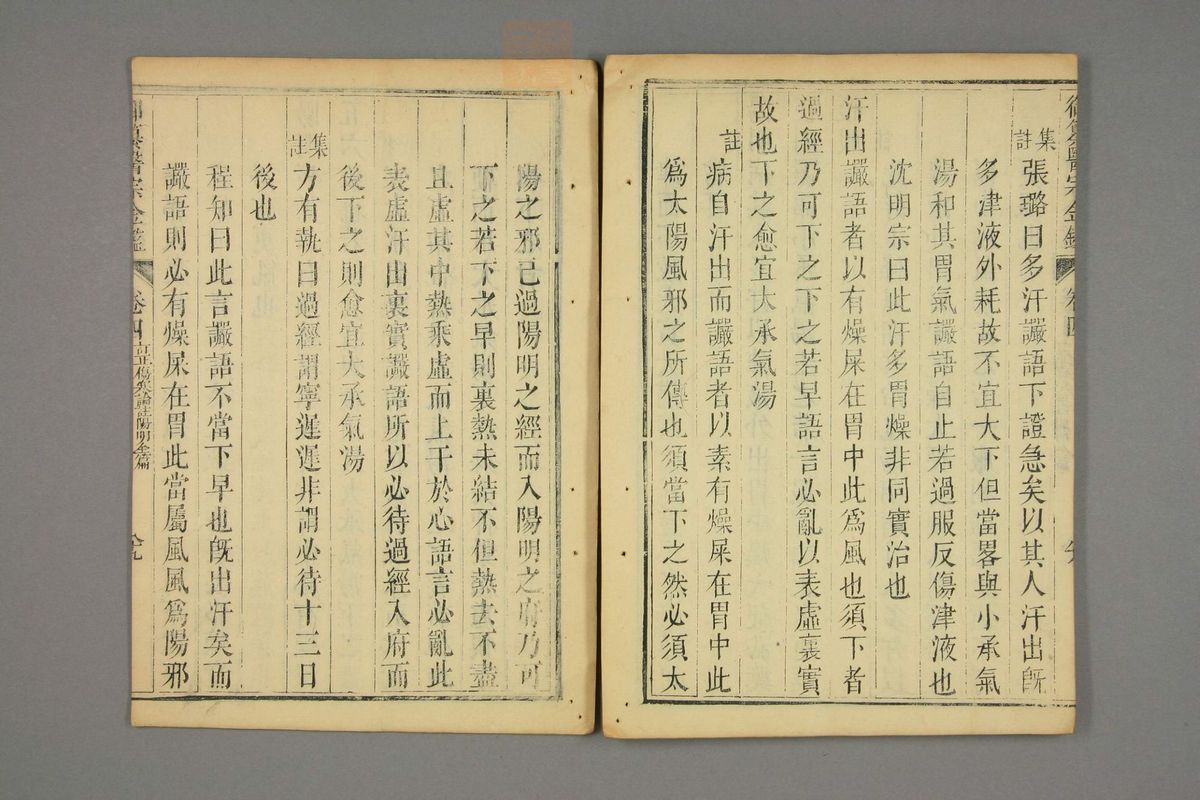 御纂醫宗金鑑
集註張璐曰多汗讝語下證急矣以其人汗出既
多津液外耗故不宜大下但當畧與小承氣
湯和其胃氣讝語自止若過服反傷津液也
沈明宗曰此汗多胃燥非同實治也
汗出讝語者以有燥屎在胃中此爲風也須下者
過經乃可下之下之若早語言必亂以表虛裏實
故也下之愈宜大承氣湯
註病自汗出而讝語者以素有燥屎在胃中此
爲太陽風邪之所傳也須當下之然必須太
陽之邪已過陽明之經而入陽明之府乃可
下之若下之早則裏熱未結不但熱去不盡
且虛其中熱乘虛而上干於心語言必亂此
表虛汗出裏實讝語所以必待過經入府而
後下之則愈宜大承氣湯
集註方有執曰過經謂寧遲遲非謂必待十三日
後也
程知曰此言讝語不當下早也既出汗矣而
讝語則必有燥屎在胃此當屬風風爲陽邪
御纂醫宗金鑑 卷四 訂正傷寒論註陽明全篇